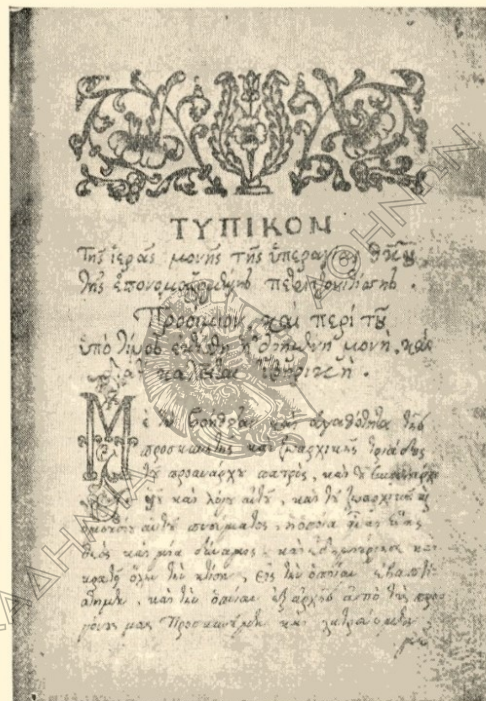 ΤΥΠΙΚΟΝ
Τῆς ἱερᾶς μονῆς τῆς ὑπεραγίας θκου
τῆς ἐπονομαζομένης πετριτζονιτίσσης.
Προοίμιον, καὶ περὶ τοῦ
ὑπὸ τίνος ἐκτίσθη ἡ μονὴ, καὶ
καλεῖται ἰβηρικὴ.
Μὲ τὴν βοήθειαν καὶ ἀγαθότητα τῆς
προσκυνητῆς καὶ ζωαρχικῆς τριάδος
τοῦ προανάρχου πατρὸς, καὶ τοῦ
καὶ λόγου αὐτοῦ, καὶ τοῦ ζωαρχικοῦ
ὁμοουσίου αὐτοῦ πνεύματος, ἡ ὁποία εἶναι ἕνας
θεὸς καὶ μία δύναμις, καὶ ἐδημιούργησε καὶ
κρατεῖ ὅλην τὴν κτίσιν, εἰς τὴν ὁποίαν ἐβαπτί
σθημεν, καὶ τὴν ὁποίαν ἐξ ἀρχῆς ἀπὸ τοὺς προ
γόνους μας προσκυνοῦμεν καὶ λατρεύομεν,
με
ΑΘΗΝΩΝ